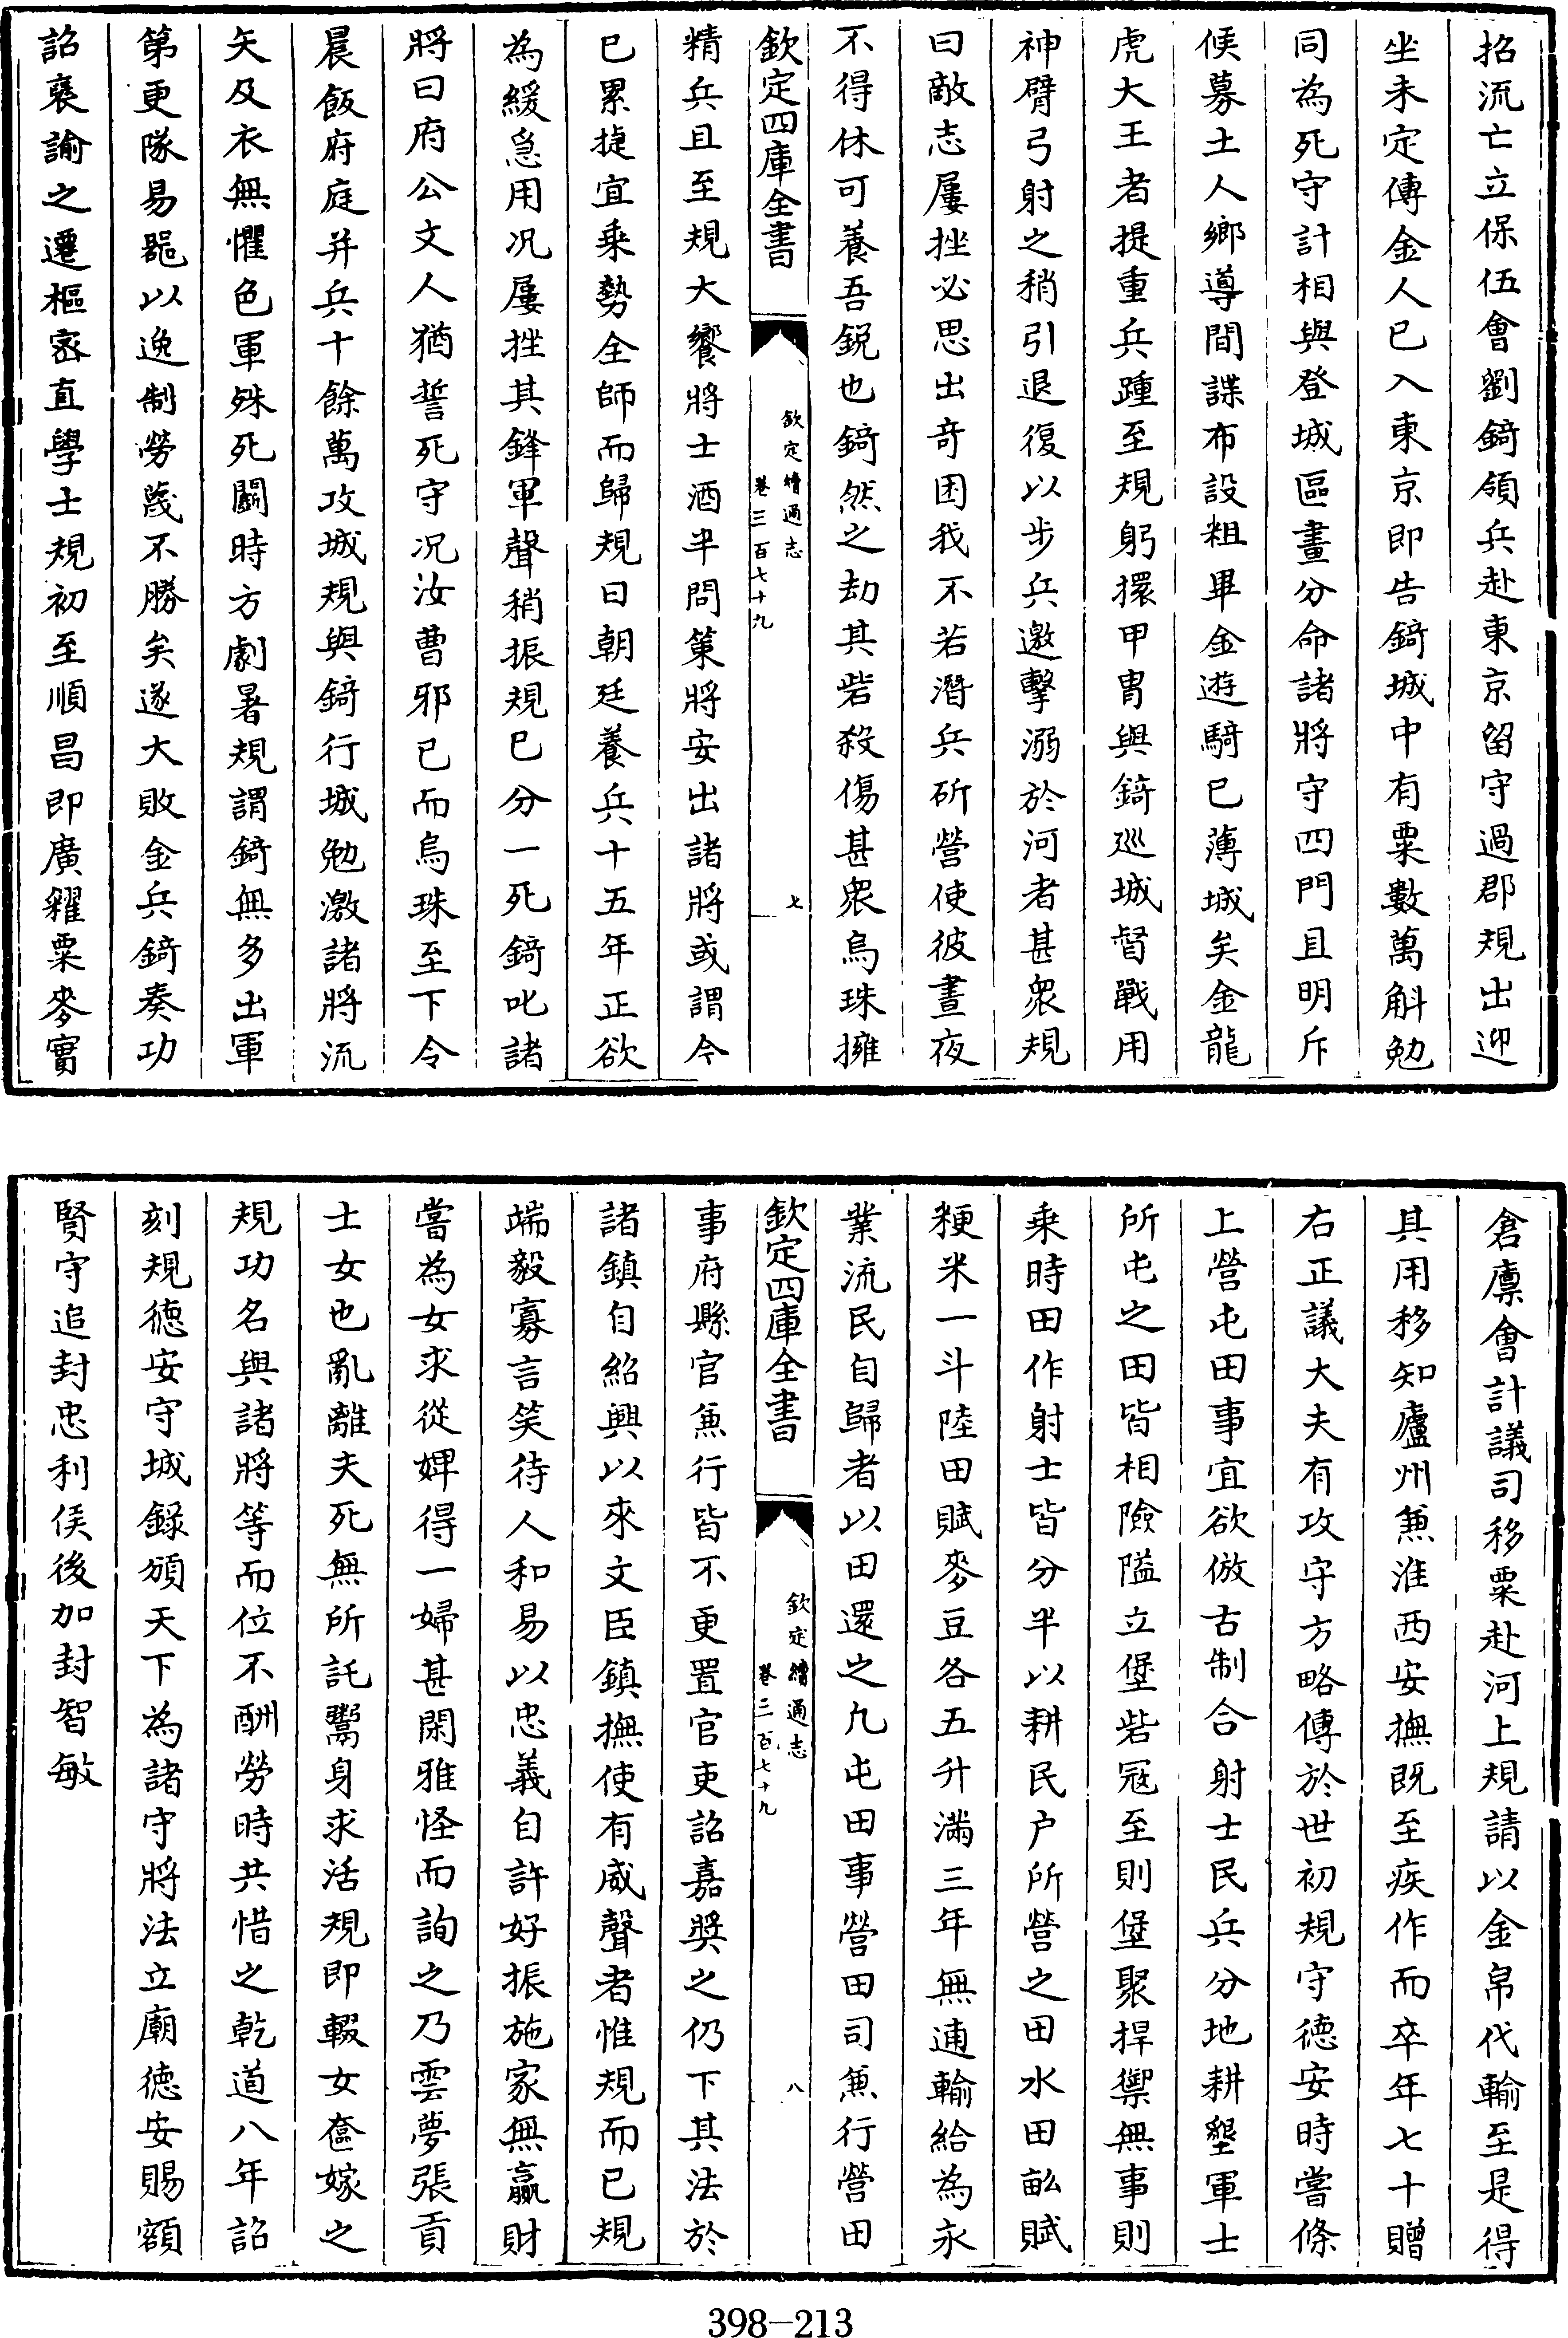 招流亡立保伍會劉錡領兵赴東京留守過郡規出迎
坐未定傳金人已入東京即告錡城中有粟數萬斛勉
同為死守計相與登城區畫分命諸將守四門且明斥
候募土人鄉導間諜布設粗畢金遊騎已薄城矣金龍
虎大王者提重兵踵至規躬擐甲冑與錡巡城督戰用
神臂弓射之稍引退復以步兵邀擊溺於河者甚衆規
曰敵志屢挫必思出奇困我不若潛兵斫營使彼晝夜
不得休可養吾銳也錡然之劫其砦殺傷甚衆烏珠擁
欽定四庫全書
欽定續通志
卷三百七十九
七
精兵且至規大饗將士酒半問策將安出諸將或謂今
已累捷宜乘勢全師而歸規曰朝廷養兵十五年正欲
為緩急用况屢挫其鋒軍聲稍振規已分一死錡叱諸
將曰府公文人猶誓死守况汝曹邪已而烏珠至下令
晨飯府庭并兵十餘萬攻城規與錡行城勉激諸將流
矢及衣無懼色軍殊死鬭時方劇暑規謂錡無多出軍
第更隊易器以逸制勞蔑不勝矣遂大敗金兵錡奏功
詔襃諭之遷樞密直學士規初至順昌即廣糴粟麥實
倉廪會計議司移粟赴河上規請以金帛代輸至是得
其用移知廬州兼淮西安撫既至疾作而卒年七十贈
右正議大夫有攻守方略傳於世初規守德安時嘗條
上營屯田事宜欲倣古制合射士民兵分地耕墾軍士
所屯之田皆相險隘立堡砦冦至則堡聚捍禦無事則
乘時田作射士皆分半以耕民户所營之田水田畝賦
粳米一斗陸田賦麥豆各五升滿三年無逋輸給為永
業流民自歸者以田還之凡屯田事營田司兼行營田
欽定四庫全書
欽定續通志
卷三百七十九
八
事府縣官兼行皆不更置官吏詔嘉奬之仍下其法於
諸鎮自紹興以來文臣鎮撫使有威聲者惟規而已規
端毅寡言笑待人和易以忠義自許好振施家無贏財
嘗為女求從婢得一婦甚閑雅怪而詢之乃雲夢張貢
士女也亂離夫死無所託鬻身求活規即輟女奩嫁之
規功名與諸將等而位不酬勞時共惜之乾道八年詔
刻規德安守城錄頒天下為諸守將法立廟德安賜額
賢守追封忠利侯後加封智敏
398-213